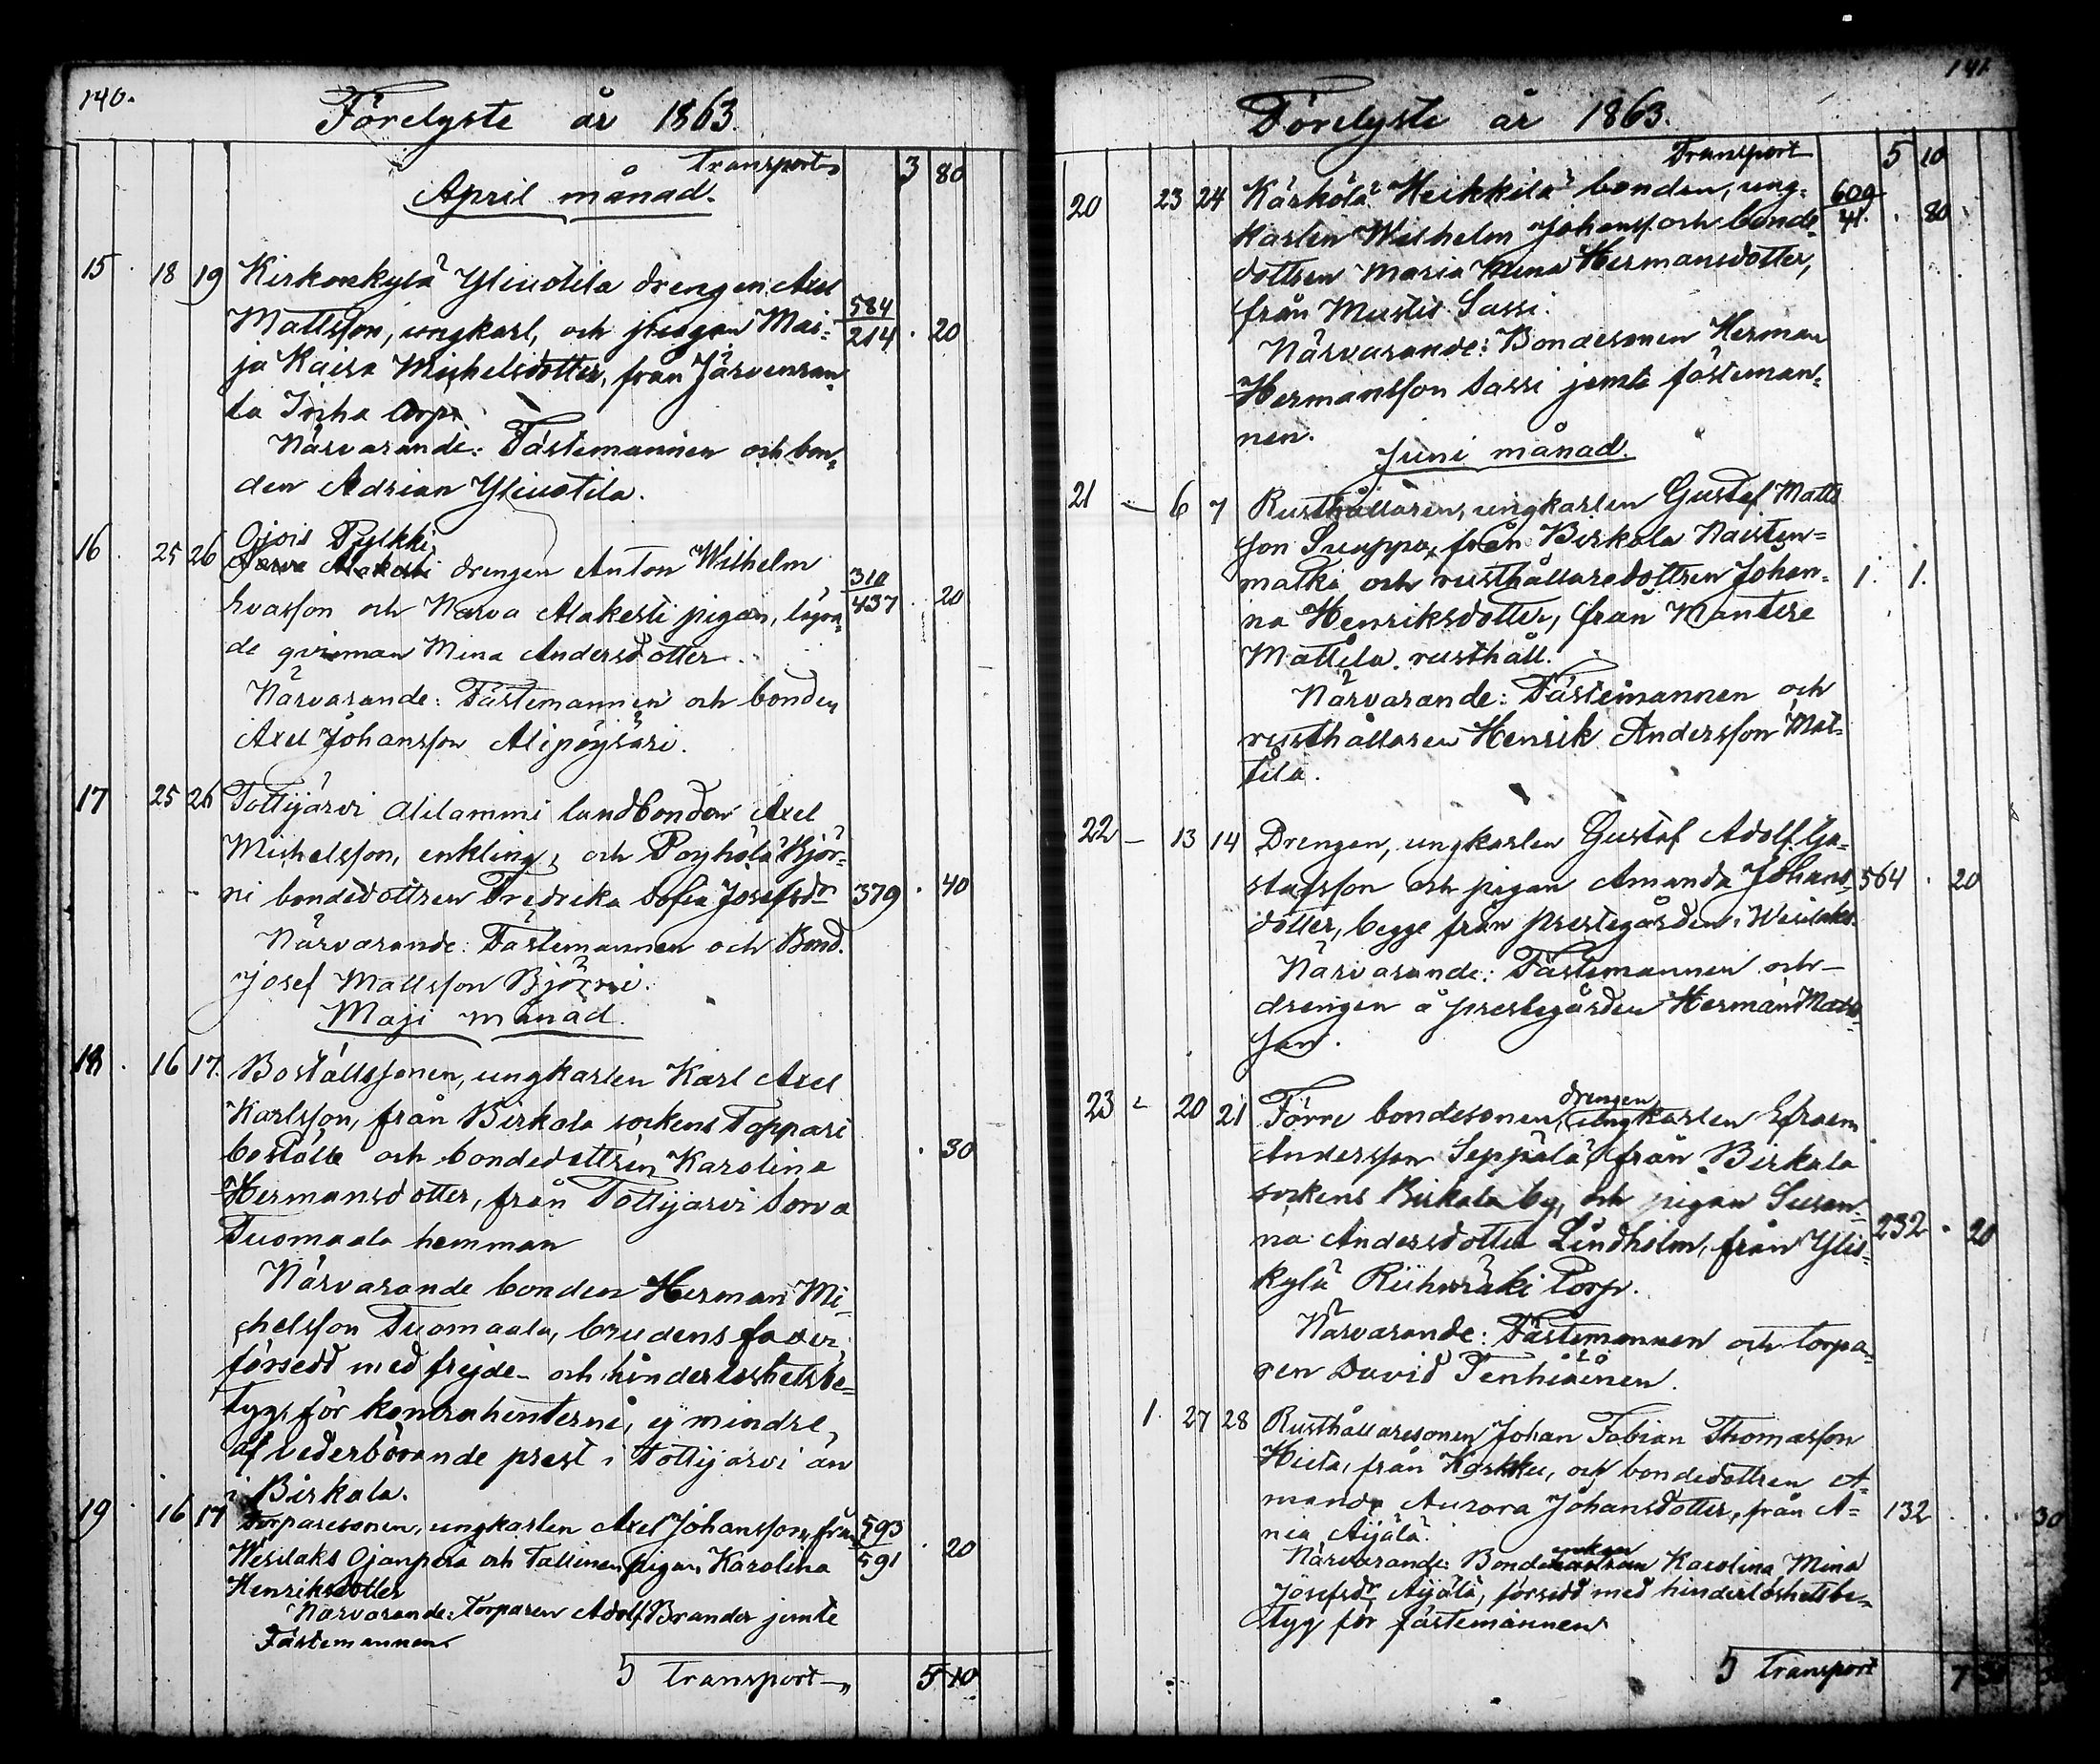 140.
Förelyste år 1863.
Transport 3 80
April månad.
15 18 19 Kirkonkylä Yliuotila drengen Axel
Mattsson, ungkarl, och pigan Mai- 584/214 20
ja Kaisa Michelsdotter, från Järvenran-
ta Inha torp.
Närvarande: Fästemannen och bon-
den Adrian Yliuotila.
Ojois Pylkki
16 25 26 drengen Anton Wilhelm 310/437 20
Ivarsson och Narva Alakesti pigan, lägra-
de qvinnan Mina Andersdotter.
Närvarande: Fästemannen och bonden
Axel Johansson Alipöysäri.
17 25 26 Tottijärvi Alilammi landbonden Axel
Michelsson, enkling, och Pöyhölä Björ-
ni bondedottren Fredrika Sofia Josefsdr 379 40
Närvarande: Fästemannen och Bond.
Josef Mattsson Björni.
Maji månad.
18 16 17. Boställssonen, ungkarlen Karl Axel
Karlsson, från Birkala sockens Toppari
boställe och bondedottren Karolina 30
Hermansdotter, från Tottijärvi Sorva
Tuomaala hemman
Närvarande bonden Herman Mi-
chelsson Tuomaala, brudens fader,
försedd med frejde- och hinderlöshetsbe-
tyg för kontrahenterne, ej mindre
af vederbörande prest i Tottijärvi än
i Birkala.
19 16 17 Torparesonen, ungkarlen Axel Johansson, från 593/591
Wesilaks Ojanperä och Tallinen pigan Karolina 20
Henriksdotter
Närvarande: Torparen Adolf Brander jemte
Fästemannen
5 Transport 5 10
141
Förelyste år 1863.
Transport 5 10
20 23 24 Kärkölä Heikkilä bonden, ung- 609/41 80
karlen Wilhelm Johanss. och bonde-
dottren Maria Hermansdotter,
från Mustis Sassi.
Närvarande: Bondesonen Herman
Hermansson Sassi jemte fästeman-
nen.
Juni månad.
21 6 7 Rusthållaren, ungkarlen Gustaf Matts
son Suuppa, från Birkala Naisten-
matka och rusthållaredottren Johan- 1. 1.
na Henriksdotter, från Mantere
Mattila rusthåll.
Närvarande: Fästemannen och
rusthållaren Henrik Andersson Mat-
tila.
22 13 14 Drengen, ungkarlen Gustaf Adolf Gu-
stafsson och pigan Amanda Johans- 564 20
dotter, begge från prestegården i Wesilaks.
Närvarande: Fästemannen och
drengen å prestegården Herman Mats-
son.
drengen
23 20 21 Förre bondesonen, ungkarlen Efraem
Andersson Seppälä, från Birkala
sockens Birkala by, och pigan Susan-
na Andersdotter Lindholm, från Ylis- 232 20
kylä torp.
Närvarande: Fästemannen och torpa-
ren David Tenhiäinen.
1. 27 28 Rusthållaresonen Johan Fabian Thomasson
Hieta, från Karkku, och bondedottren A-
manda Aurora Johansdotter, från A- 132 30
nia Äijälä.
Närvarande: Bonde enkan Karolina Mina
Josefsdr Äijälä, försedd med hinderlöshetsbe-
tyg för fästemannen
5 Transport 7 30